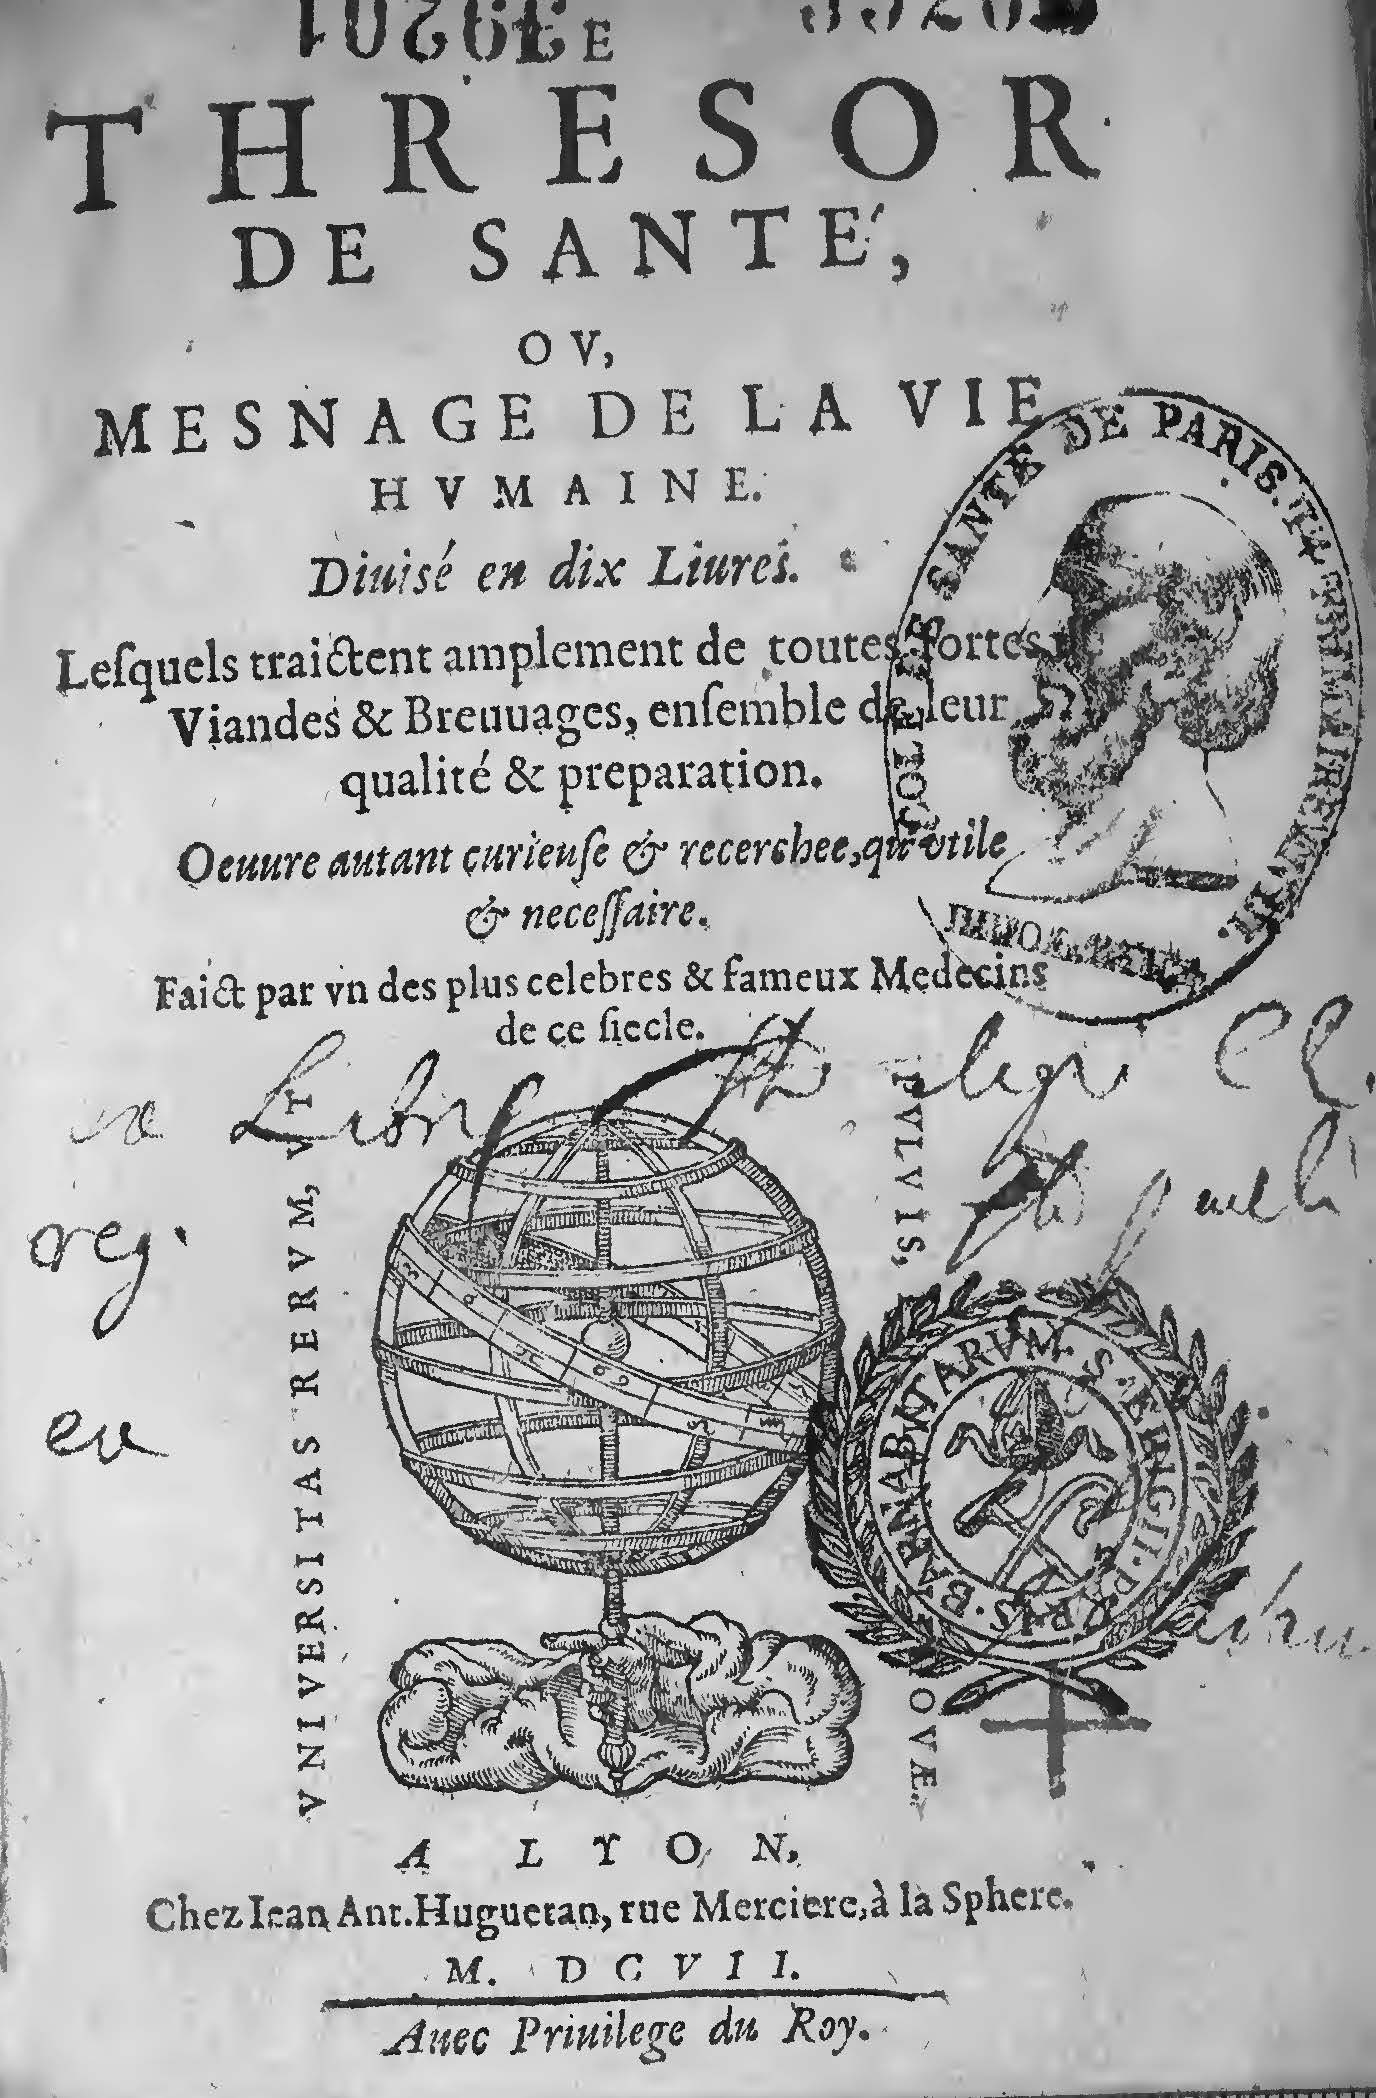 E
THRESOR
DE SANTÉ,
OV,
MESNAGE DE LA VIE
HVMAINE.
Diuisé en dix Liures.
Leſquels traictent amplement de toutes ſortes
Viandes & Breuuages, enſemble de leur
qualité & preparation.
Oeuure autant curieuſe & recerchee, qu'vtile
& neceſſaire.
Faict par vn des plus celebres & fameux Medecins
de ce ſiecle.
DE SANTÉ DE PARIS.
Libris
reg.
VNIVERSITAS RERVM, VT
PVLVIS,
BARNABITARVM. S. ELIGII. PARIS.
OVÆ.
A LYON,
Chez Iean Ant. Huguetan, rue Merciere, à la Sphere.
M. DCVII.
Auec Priuilege du Roy.